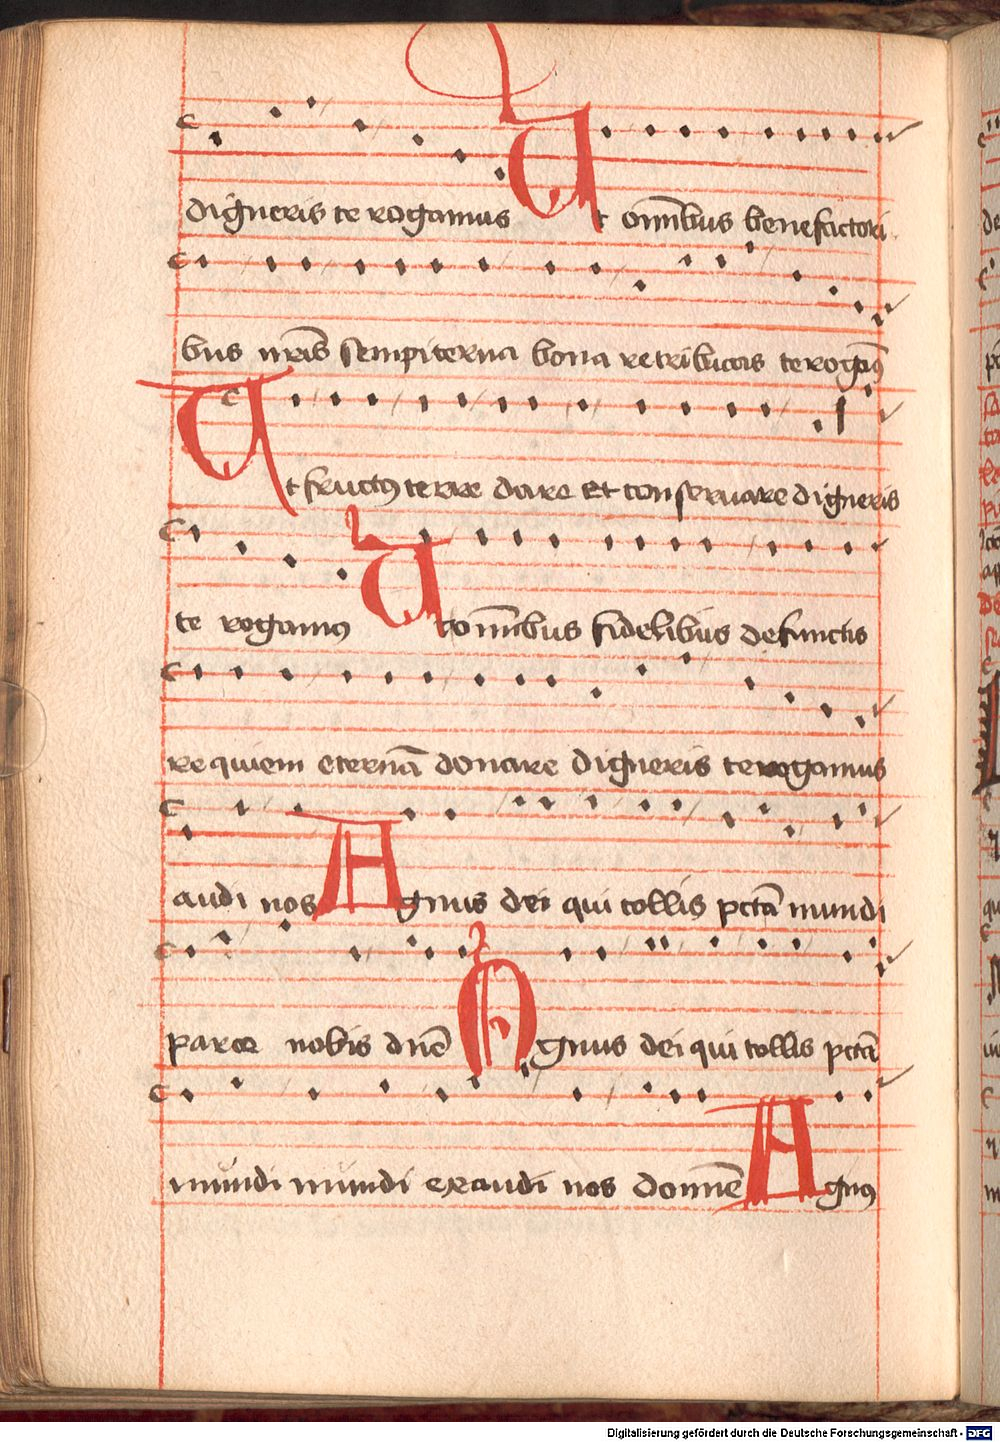 digneris te rogamus Ut om̄ibus benefactori
bus nr̄is sempiterna bona retribuas te rogam⁹
Ut fruct⁹ terre dare et conseruare digneris
te rogam⁹ Ut om̄ibus fidelibus defunctis
requiem eternā donare digneris te rogamus
audi nos Agnus dei qui tollis pctā mundi
parce nobis dn̄e Agnus dei qui tollis pctā
mundi mundi exaudi nos domīe Agn⁹
Digitalisierung gefördert durch die Deutsche Forschungsgemeinschaft - DFG